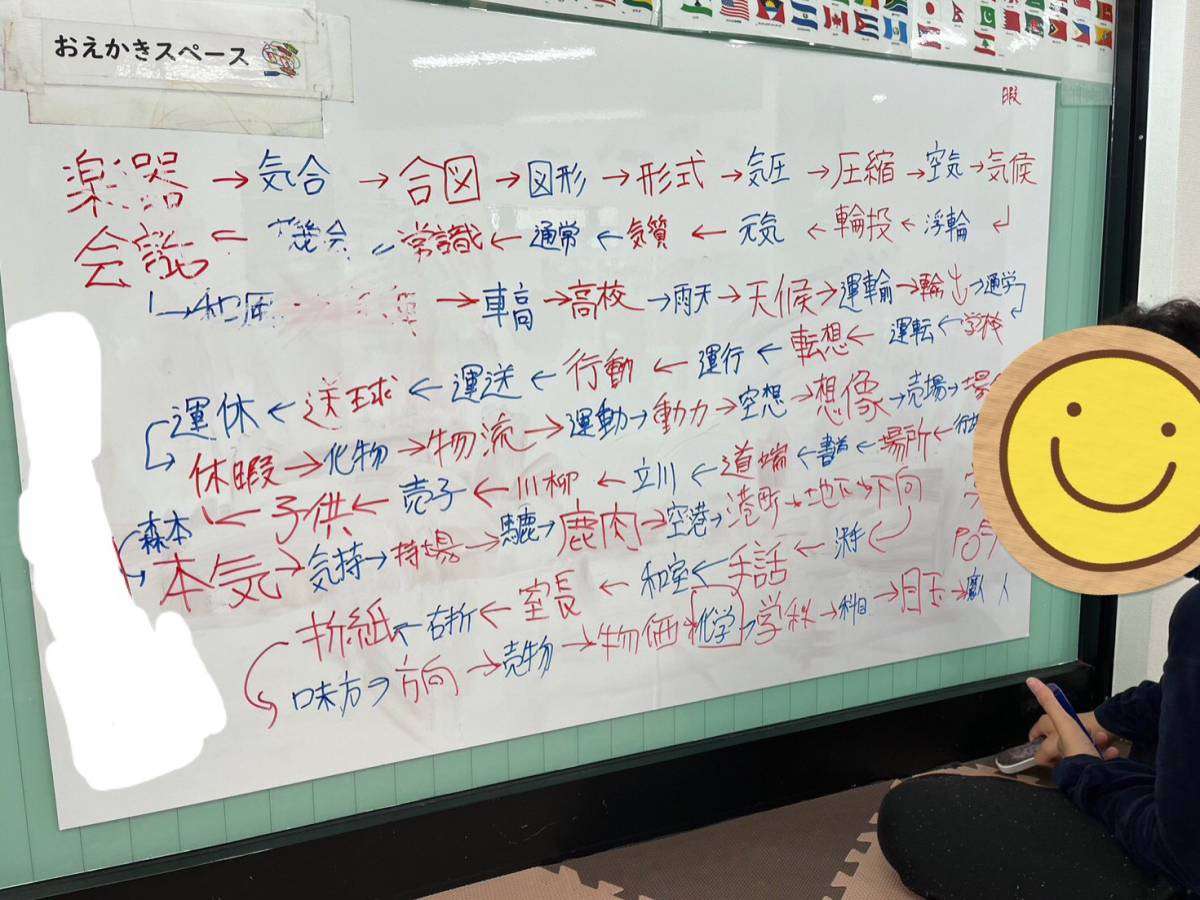 おえかきスペース
暇
楽器→気合→合図→図形→形式→気圧→圧縮→空気→気候
会話←機会←常識←通常←気質←元気←輪投←浮輪
→車高→高校→雨天→天候→運輸→輸出→通学
運休←送球←運送←行動←運行←転想←運転←学校
休暇→化物→物流→運動→動力→空想→想像→売場→場
子供←売子←川柳←立川←道端←←場所←
森本
本気→気持→持場→→鹿肉→空港→港町→地下→下向
折紙←右折←室長←和室←手話←
味方→方向→売物→物価→化学→学科→科目→目玉→